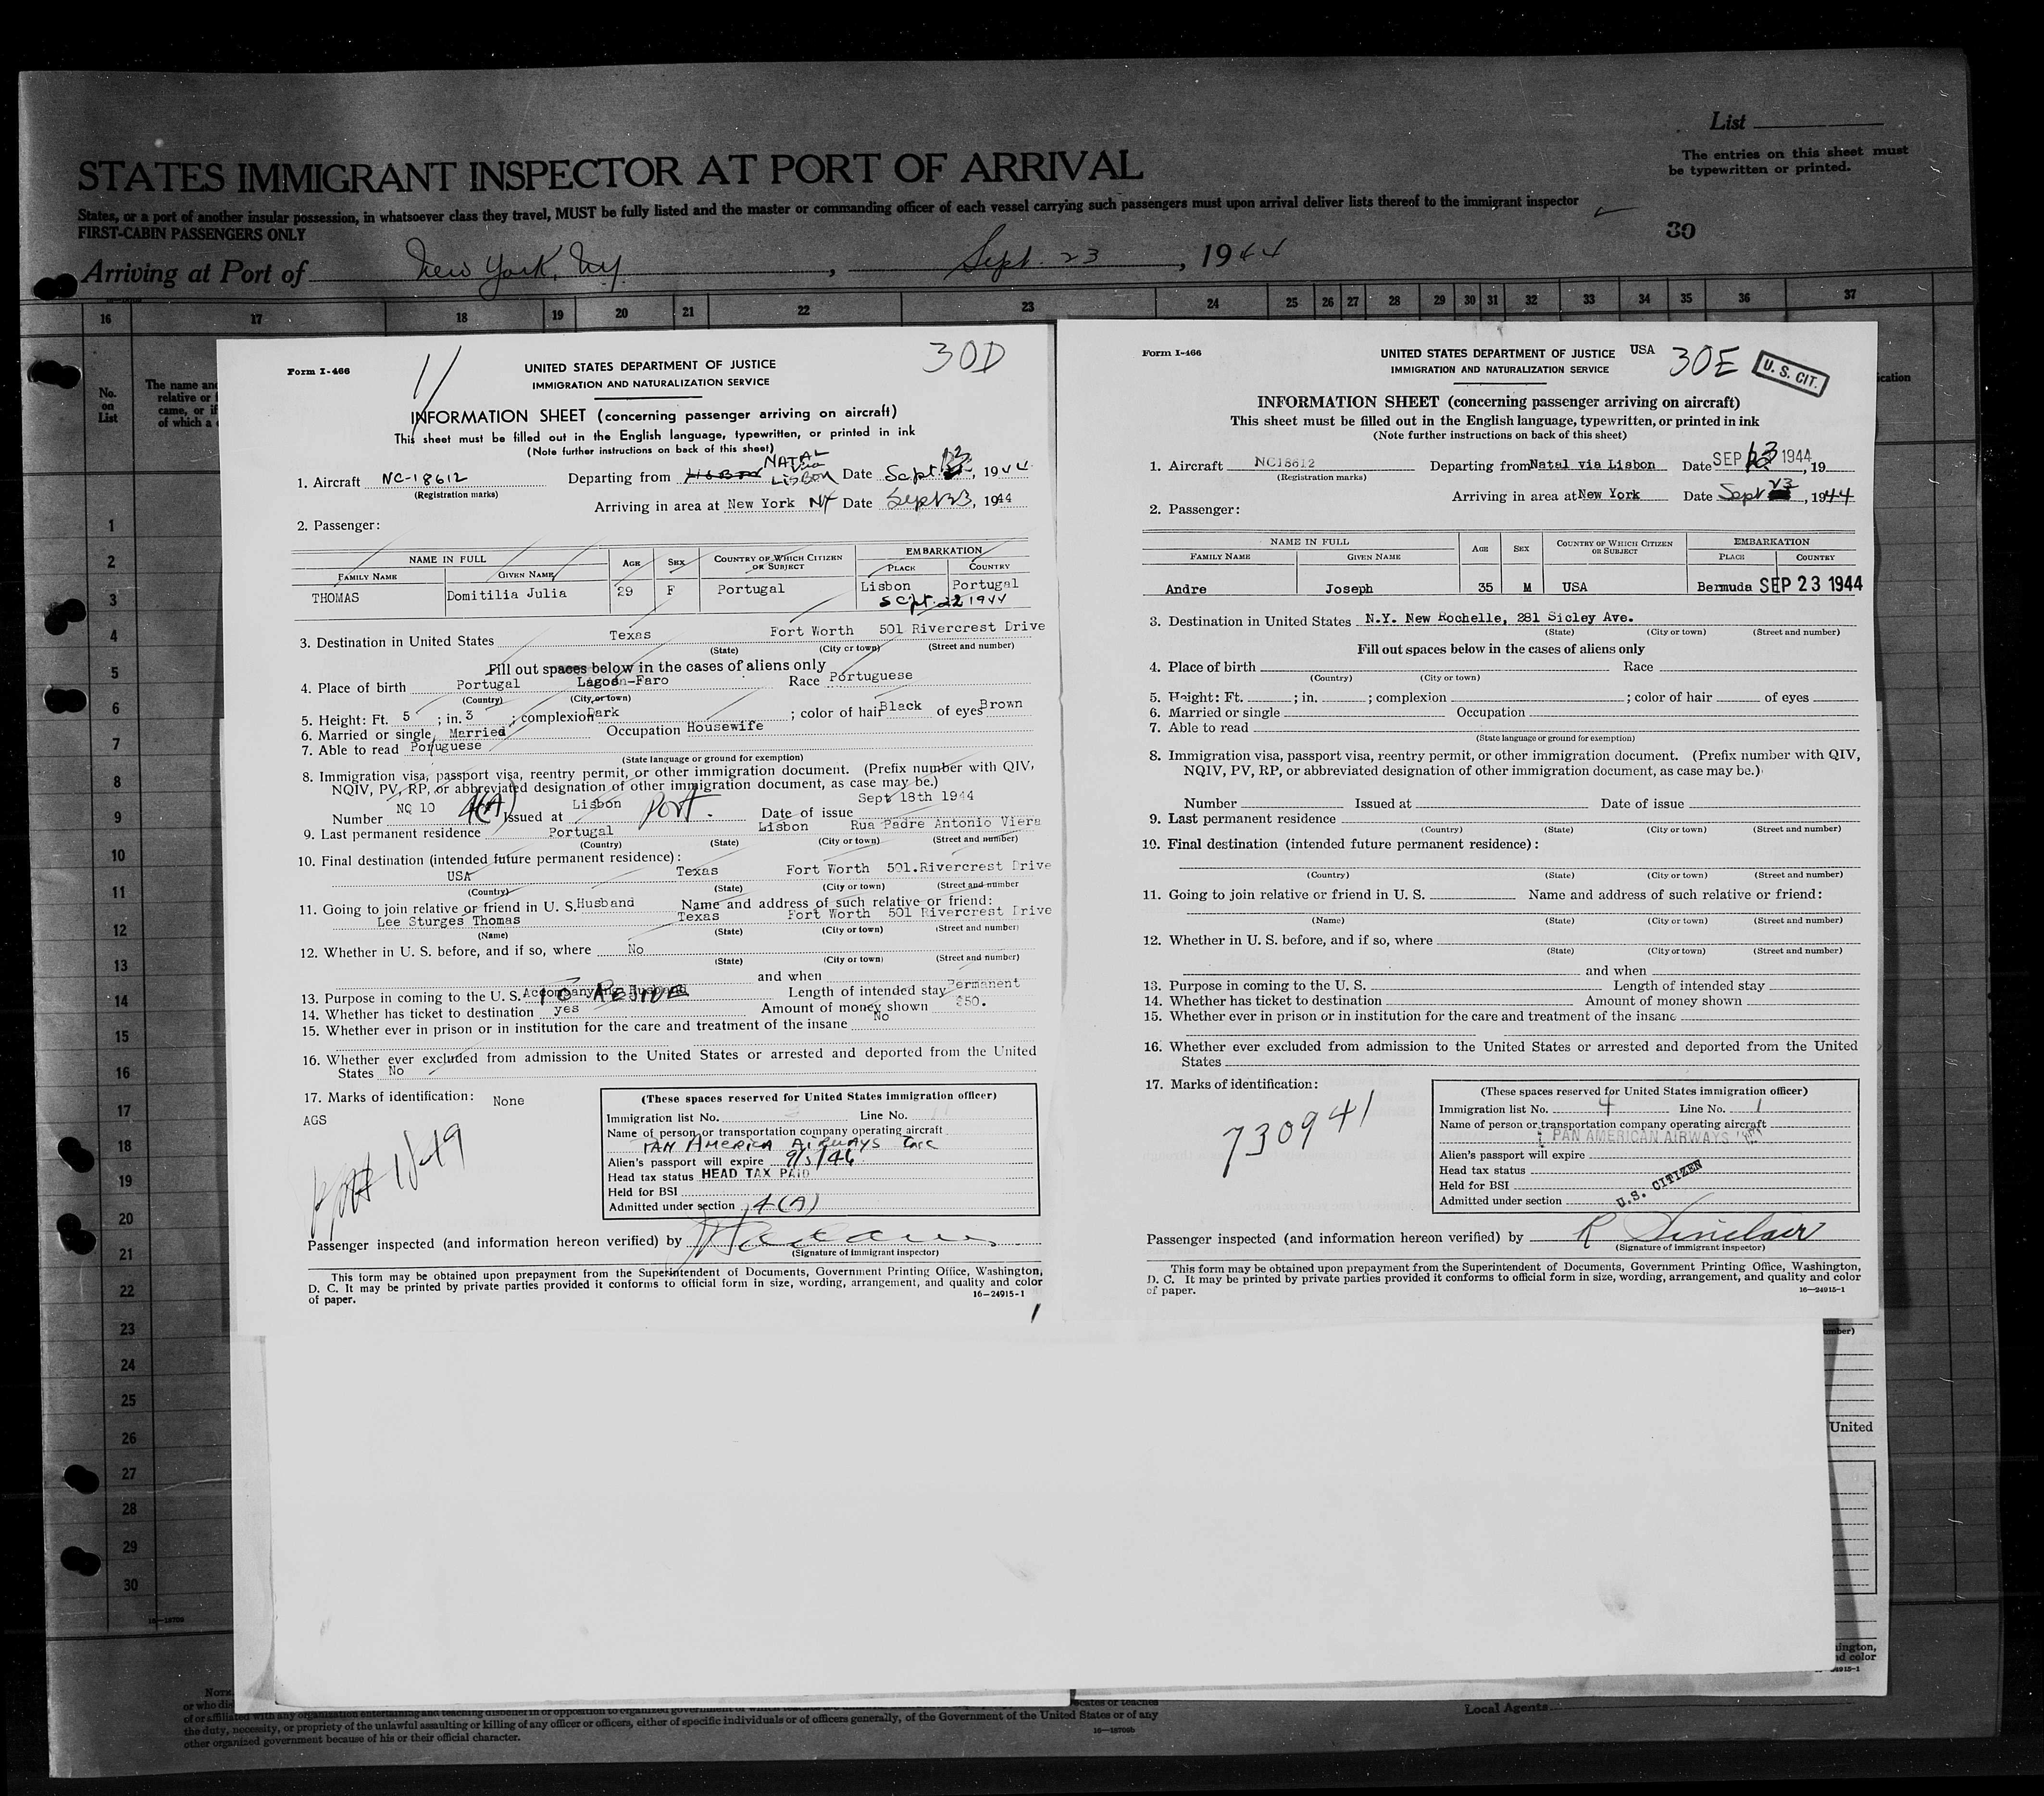 List
The entries on this sheet must
be typewritten or printed.
STATES IMMIGRANT INSPECTOR AT PORT OF ARRIVAL
States, or a port of another insular possession, in whatsoever class they travel, MUST be fully listed and the master or commanding officer of each vessel carrying such passengers must upon arrival deliver lists thereof to the immigrant inspector
FIRST-CABIN PASSENGERS ONLY
30
Arriving at Port of New York, NY, Sept. 23, 1944
16 17 18 19 20 21 22 23 24 25 26 27 28 29 30 31 32 33 34 35 36 37
No.
on
List
The name and
relative or
came, or if
of which a
1
2
3
4
5
6
7
8
9
10
11
12
13
14
15
16
17
18
19
20
21
22
23
24
25
26
27
28
29
30
Form I-466
30D
UNITED STATES DEPARTMENT OF JUSTICE
IMMIGRATION AND NATURALIZATION SERVICE
INFORMATION SHEET (concerning passenger arriving on aircraft)
This sheet must be filled out in the English language, typewritten, or printed in ink
(Note further instructions on back of this sheet)
1. Aircraft NC-18612 Departing from NATAL via LISBON Date Sept. , 1944
(Registration marks)
Arriving in area at New York NY Date Sept 23, 1944
2. Passenger:
NAME IN FULL AGE SEX COUNTRY OF WHICH CITIZEN OR SUBJECT EMBARKATION
FAMILY NAME GIVEN NAME PLACE COUNTRY
THOMAS Domitilia Julia 29 F Portugal Lisbon Portugal
Sept. 22 1944
3. Destination in United States Texas Fort Worth 501 Rivercrest Drive
(State) (City or town) (Street and number)
Fill out spaces below in the cases of aliens only
4. Place of birth Portugal Lagoa-Faro Race Portuguese
(Country) (City or town)
5. Height: Ft. 5 ; in. 3 ; complexion Dark ; color of hair Black of eyes Brown
6. Married or single Married Occupation Housewife
7. Able to read Portuguese
(State language or ground for exemption)
8. Immigration visa, passport visa, reentry permit, or other immigration document. (Prefix number with QIV,
NQIV, PV, RP, or abbreviated designation of other immigration document, as case may be.)
Number NQ 10 4(A) Issued at Lisbon Port. Date of issue Sept 18th 1944
9. Last permanent residence Portugal Lisbon Rua Padre Antonio Viera
(Country) (State) (City or town) (Street and number)
10. Final destination (intended future permanent residence):
USA Texas Fort Worth 501.Rivercrest Drive
(Country) (State) (City or town) (Street and number
11. Going to join relative or friend in U. S. Husband Name and address of such relative or friend:
Lee Sturges Thomas Texas Fort Worth 501 Rivercrest Drive
(Name) (State) (City or town) (Street and number)
12. Whether in U. S. before, and if so, where No
(State) (City or town) (Street and number)
and when
13. Purpose in coming to the U. S. Accompanying Husband TO RESIDE Length of intended stay Permanent
14. Whether has ticket to destination yes Amount of money shown $50.
15. Whether ever in prison or in institution for the care and treatment of the insane No
16. Whether ever excluded from admission to the United States or arrested and deported from the United
States No
17. Marks of identification: None
AGS
(These spaces reserved for United States immigration officer)
Immigration list No. Line No.
Name of person or transportation company operating aircraft
PAN AMERICA AIRWAYS Inc
Alien's passport will expire 9/5/46
Head tax status HEAD TAX PAID
Held for BSI
Admitted under section 4(A)
Passenger inspected (and information hereon verified) by
(Signature of immigrant inspector)
This form may be obtained upon prepayment from the Superintendent of Documents, Government Printing Office, Washington,
D. C. It may be printed by private parties provided it conforms to official form in size, wording, arrangement, and quality and color
of paper.
16—24915-1
Form I-466
UNITED STATES DEPARTMENT OF JUSTICE USA 30E U. S. CIT.
IMMIGRATION AND NATURALIZATION SERVICE
INFORMATION SHEET (concerning passenger arriving on aircraft)
This sheet must be filled out in the English language, typewritten, or printed in ink
(Note further instructions on back of this sheet)
1. Aircraft NC18612 Departing from Natal via Lisbon Date SEP 1944, 19
(Registration marks)
Arriving in area at New York Date Sept 23, 1944
2. Passenger:
NAME IN FULL AGE SEX COUNTRY OF WHICH CITIZEN OR SUBJECT EMBARKATION
FAMILY NAME GIVEN NAME PLACE COUNTRY
Andre Joseph 35 M USA Bermuda SEP 23 1944
3. Destination in United States N.Y. New Rochelle, 281 Sicley Ave.
(State) (City or town) (Street and number)
Fill out spaces below in the cases of aliens only
4. Place of birth Race
(Country) (City or town)
5. Height: Ft. ; in. ; complexion ; color of hair of eyes
6. Married or single Occupation
7. Able to read
(State language or ground for exemption)
8. Immigration visa, passport visa, reentry permit, or other immigration document. (Prefix number with QIV,
NQIV, PV, RP, or abbreviated designation of other immigration document, as case may be.)
Number Issued at Date of issue
9. Last permanent residence
(Country) (State) (City or town) (Street and number)
10. Final destination (intended future permanent residence):
(Country) (State) (City or town) (Street and number)
11. Going to join relative or friend in U. S. Name and address of such relative or friend:
(Name) (State) (City or town) (Street and number)
12. Whether in U. S. before, and if so, where
(State) (City or town) (Street and number)
and when
13. Purpose in coming to the U. S. Length of intended stay
14. Whether has ticket to destination Amount of money shown
15. Whether ever in prison or in institution for the care and treatment of the insane
16. Whether ever excluded from admission to the United States or arrested and deported from the United
States
17. Marks of identification:
730941
(These spaces reserved for United States immigration officer)
Immigration list No. 4 Line No. 1
Name of person or transportation company operating aircraft
PAN AMERICAN AIRWAYS
Alien's passport will expire
Head tax status
Held for BSI
Admitted under section U.S. CITIZEN
Passenger inspected (and information hereon verified) by R Sinclair
(Signature of immigrant inspector)
This form may be obtained upon prepayment from the Superintendent of Documents, Government Printing Office, Washington,
D. C. It may be printed by private parties provided it conforms to official form in size, wording, arrangement, and quality and color
of paper.
16—24915-1
United
Local Agents
of or affiliated with any organization entertaining and teaching disbelief in or opposition to organized government
the duty, necessity, or propriety of the unlawful assaulting or killing of any officer or officers, either of specific individuals or of officers generally, of the Government of the United States or of any
other organized government because of his or their official character.